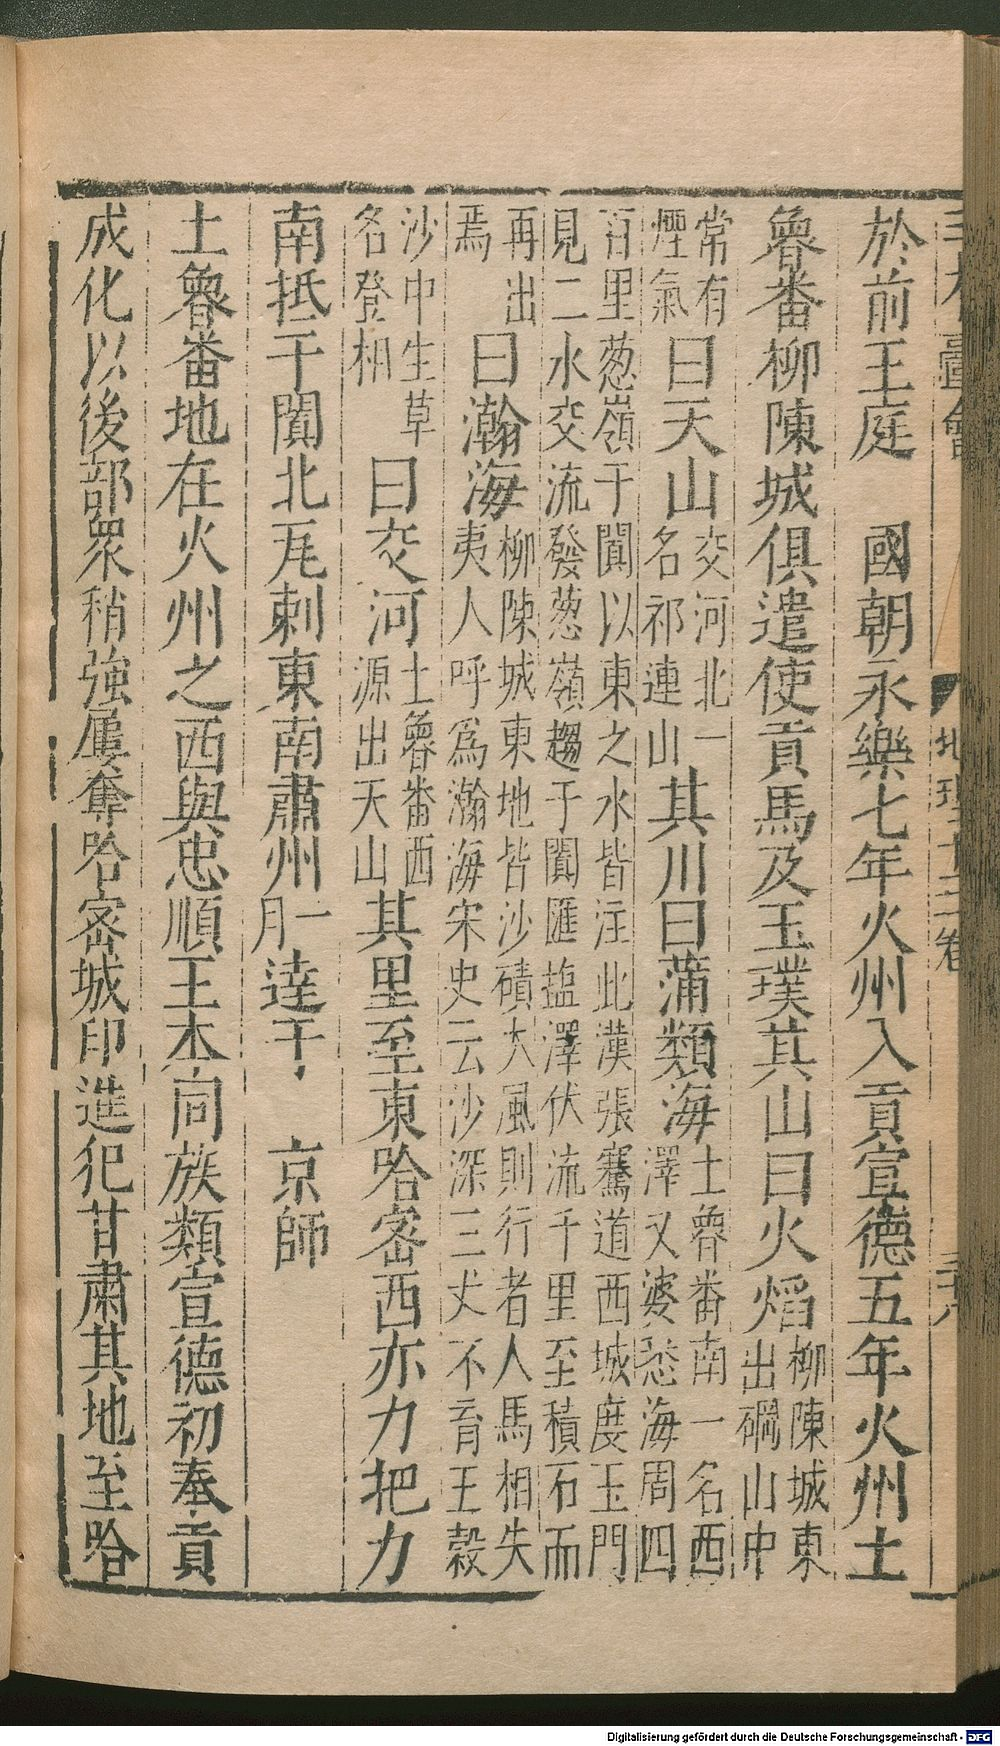 於前王庭　國朝永樂七年火州入貢宣德五年火州土
魯番柳陳城俱遣使貢馬及玉璞其山曰火熖柳陳城東出磠山中
常有煙氣曰天山交河北一名祁連山其川曰蒲類海土魯番南一名西澤又婆悉海周四
百里葱嶺于闐以東之水皆注此漢張騫道西域度玉門見二水交流發葱嶺趨于闐匯塩澤伏流千里至積石而
再出焉曰瀚海柳陳城東地皆沙磧大風則行者人馬相失夷人呼爲瀚海宋史云沙深三丈不育五穀
沙中生草名登相曰交河土魯番西源出天山其里至東哈密西亦力把力
南抵于闐北瓦剌東南肅州一月逹于　京師
土魯番地在火州之西與忠順王本同族類宣德初奉貢
成化以後部衆稍強屢奪哈密城印造犯甘肅其地至哈
地理十三卷
三十八
Digitalisierung gefördert durch die Deutsche Forschungsgemeinschaft - DFG